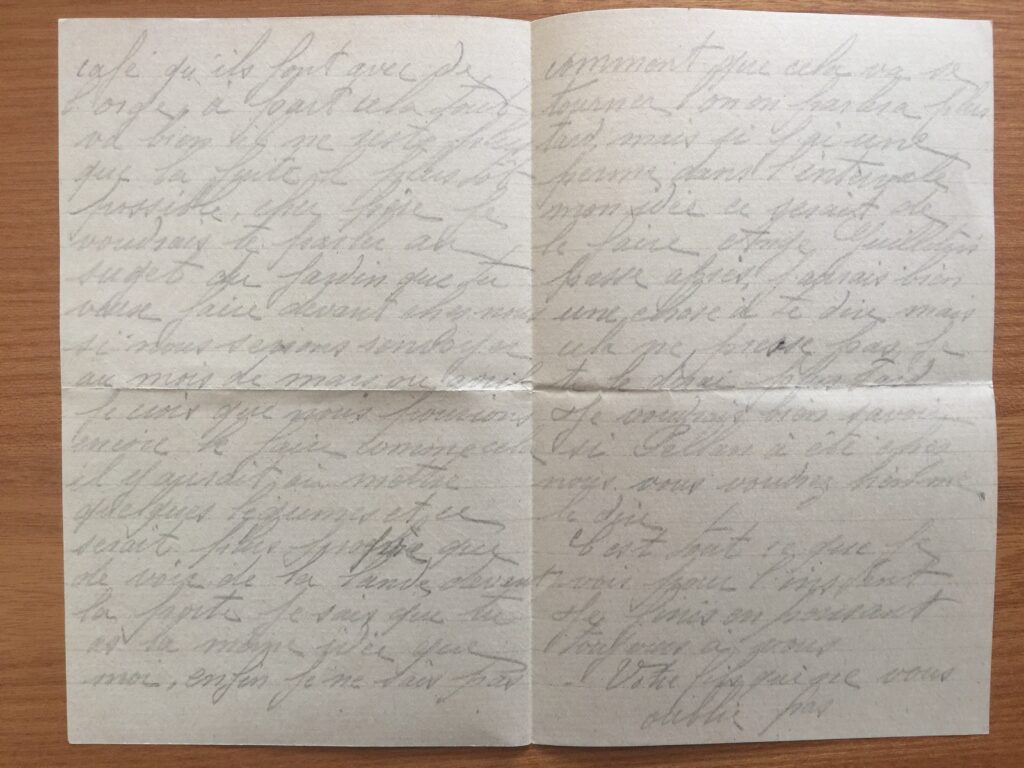 café qu'ils font avec de
l'orge, à part cela tout
va bien il ne reste plus
que la fuite le plus tôt
possible, cher père je
voudrais te parler au
sujet du jardin que tu
veux faire devant chez nous
si nous serions
au mois de mars ou avril
je crois que nous pourions
encore le faire comme cela
il y aurait mettre
quelques légumes et ce
serait plus propre que
de voir de la lande devant
la porte je sais que tu
as la même idée que
moi, enfin je ne sais pas
comment que cela va se
tourner l'on en parlera plus
tard, mais si j'ai une
permi, dans l'intervale
mon idée ce serait de
le faire
passe après, j'aurais bien
une chose à te dire mais
cela ne presse pas je
te le dirai plus tard
Je voudrais bien savoir
si Pellan à été chez
nous, vous voudrez bien me
le dire
C'est tout ce que je
vois pour l'instant
Je finis en pensant
toujours à vous
Votre fils qui ne vous
oublie pas